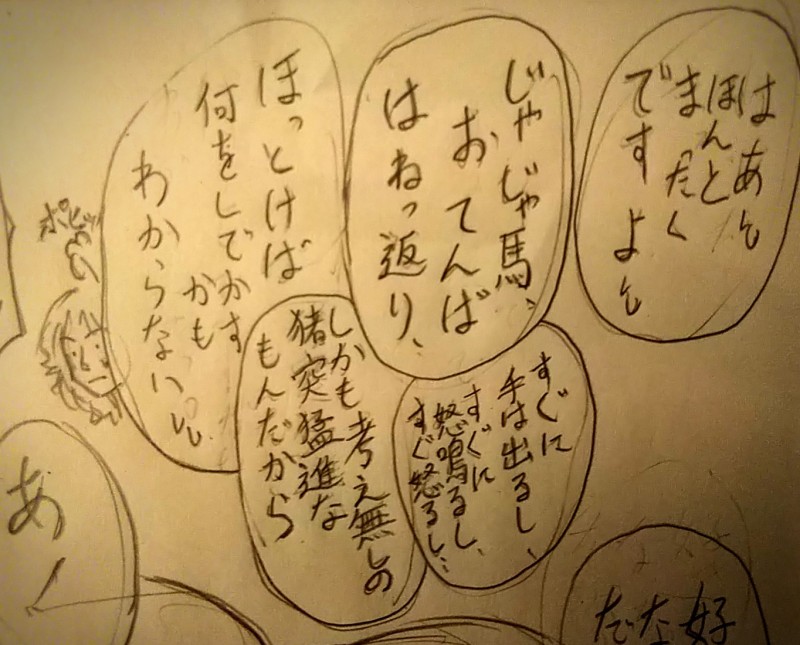 はあ…
ほんと
まったく
ですよ…
じゃじゃ馬、
おてんば
はねっ返り、
すぐに
手は出るし、
すぐに
怒鳴るし、
すぐ怒るし…
しかも考え無しの
猪突猛進な
もんだから
ほっとけば
何をしでかす
かも
わからないし
好
な
だ
あ